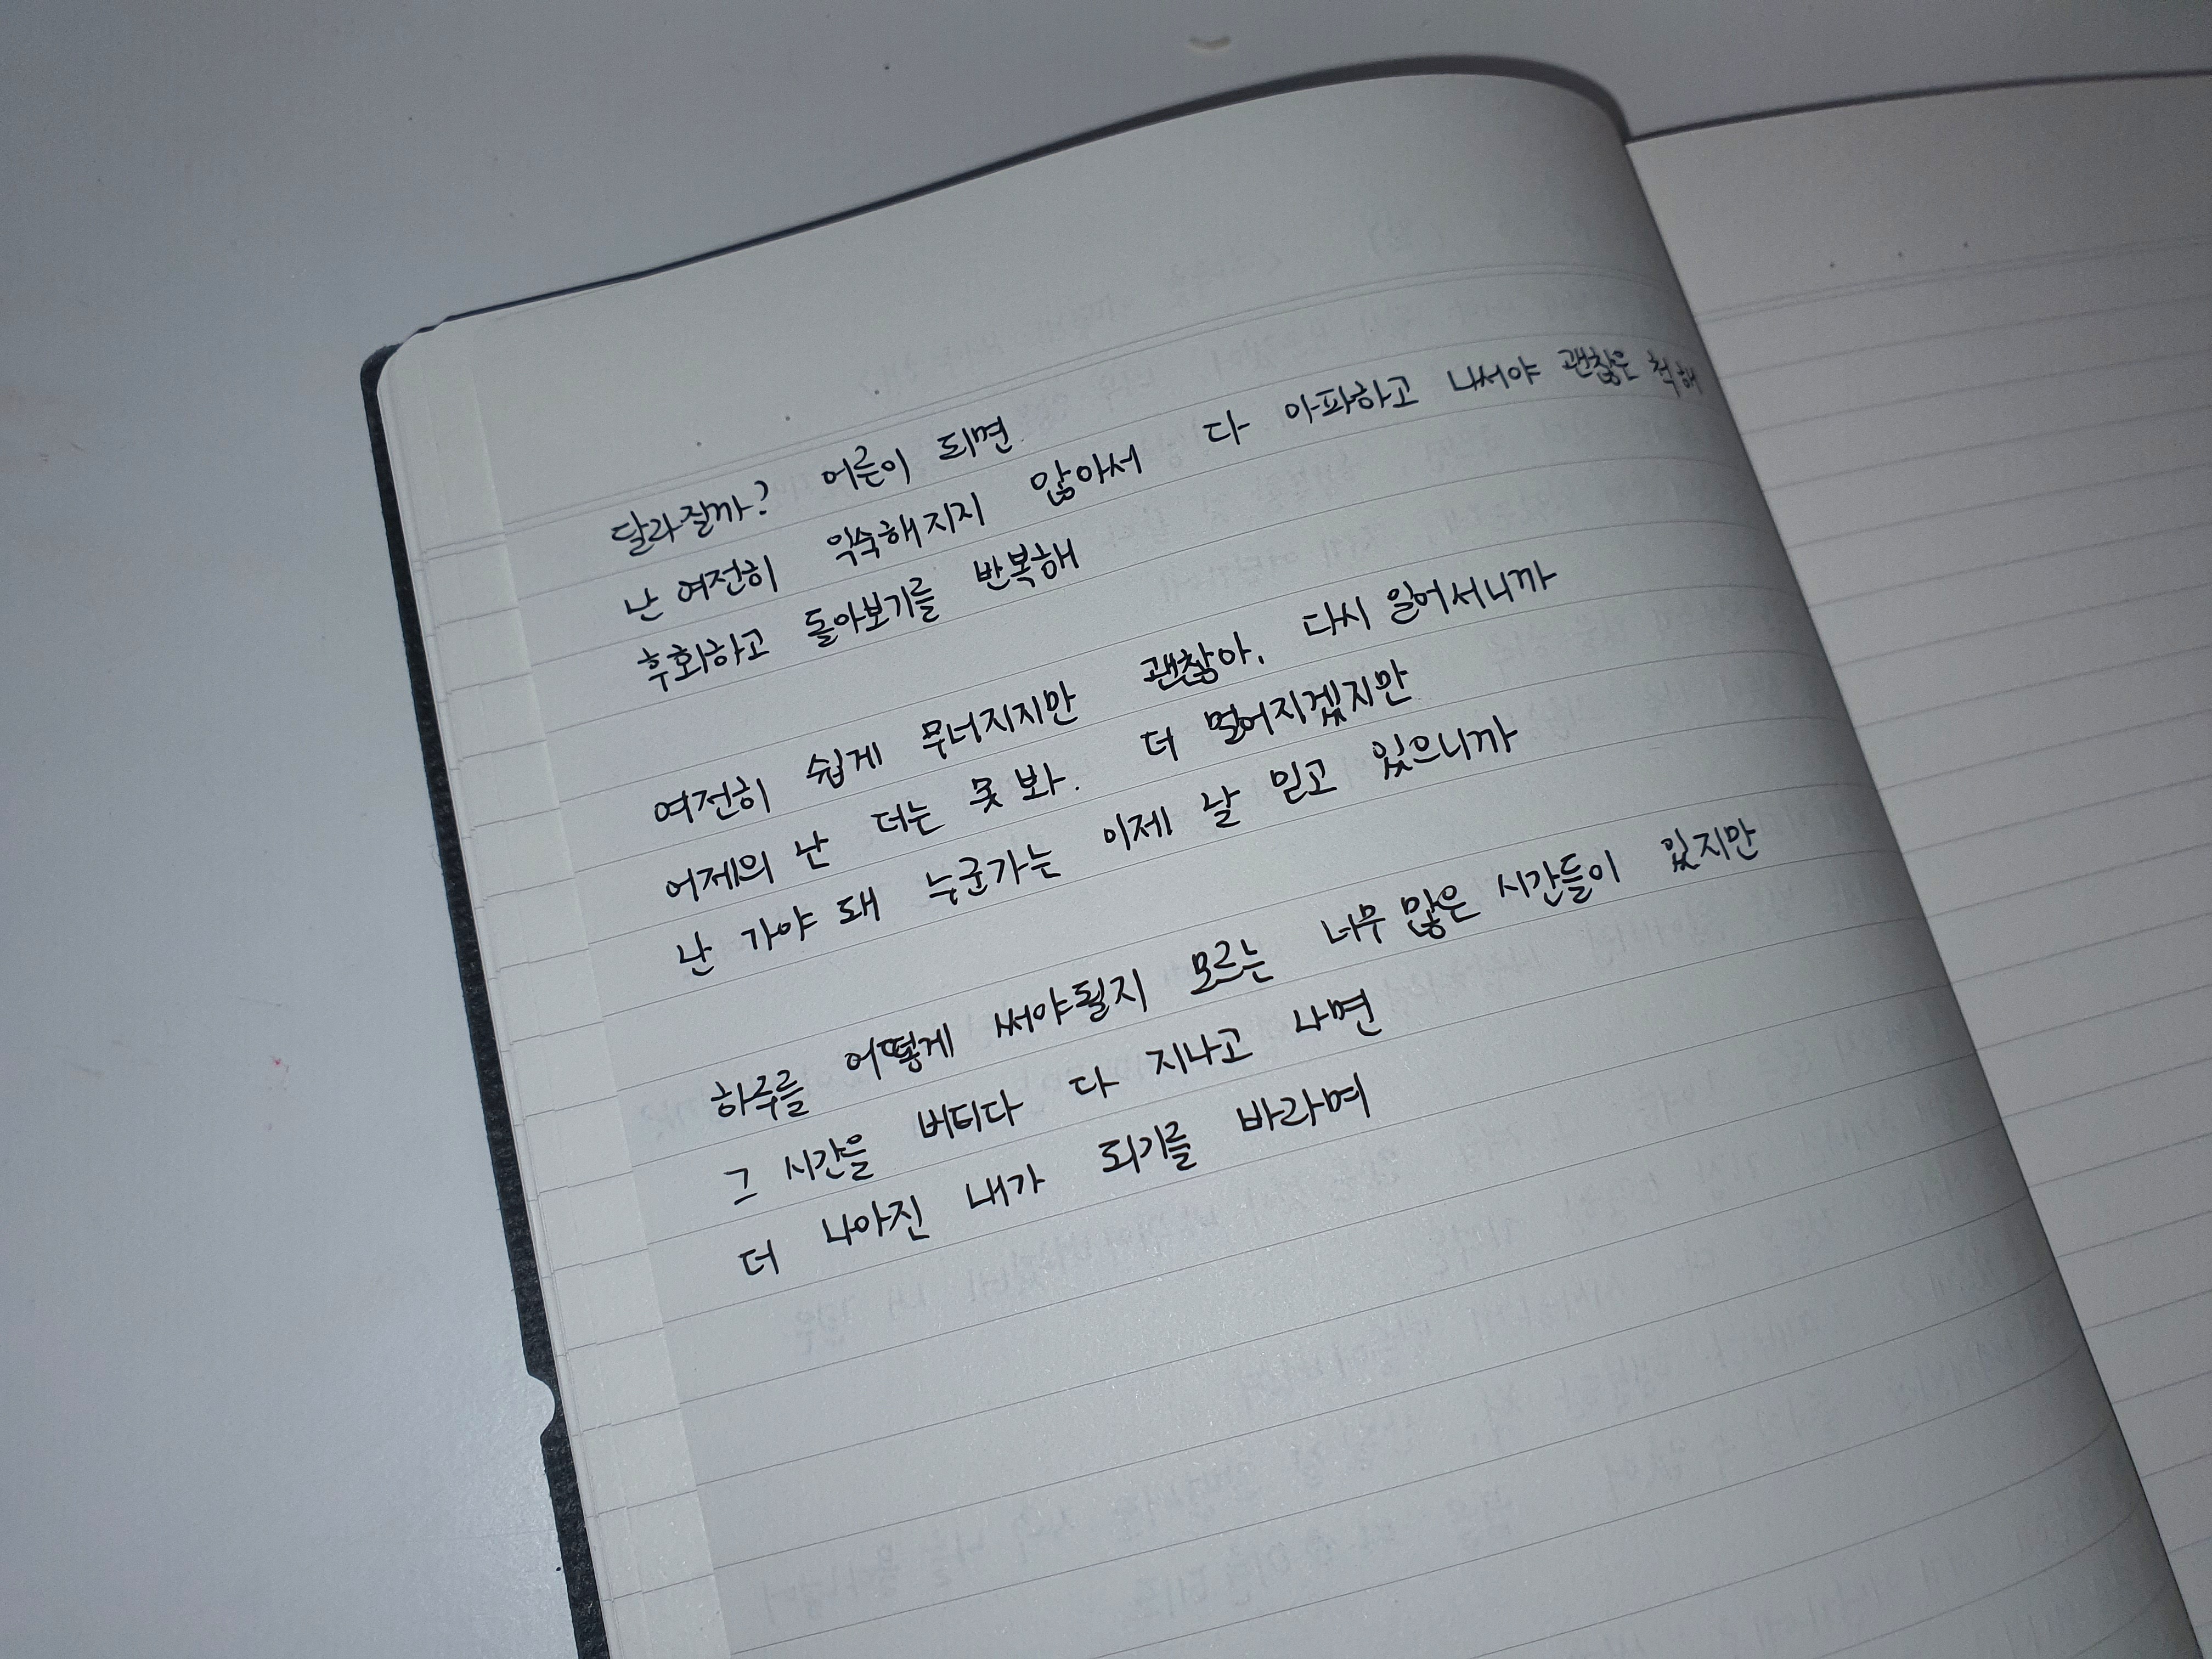 달라질까? 어른이 되면
난 여전히 익숙해지지 않아서 다 아파하고 나서야 괜찮은 척해
후회하고 돌아보기를 반복해
여전히 쉽게 무너지지만 괜찮아. 다시 일어서니까
어제의 난 더는 못 봐. 더 멀어지겠지만
난 가야 돼 누군가는 이제 날 믿고 있으니까
하루를 어떻게 써야될지 모르는 너무 많은 시간들이 있지만
그 시간을 버티다 다 지나고 나면
더 나아진 내가 되기를 바라며